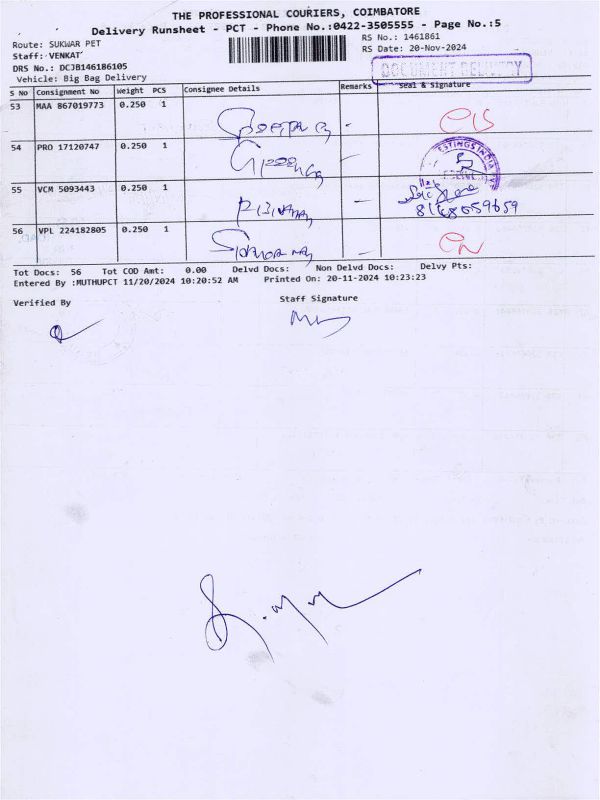 THE PROFESSIONAL COURIERS, COIMBATORE
Delivery Runsheet - PCT - Phone No.:0422-3505555 - Page No.:5
Route: SUKWAR PET
RS No.: 1461861
Staff: VENKAT
RS Date: 20-Nov-2024
DRS No.: DCJB146186105
DOCUMENT DELIVERY
Vehicle: Big Bag Delivery
S No Consignment No Weight PCS Consignee Details Remarks Seal & Signature
53 MAA 867019773 0.250 1
54 PRO 17120747 0.250 1
55 VCM 5093443 0.250 1
8168059659
56 VPL 224182805 0.250 1
Tot Docs: 56 Tot COD Amt: 0.00 Delvd Docs: Non Delvd Docs: Delvy Pts:
Entered By :MUTHUPCT 11/20/2024 10:20:52 AM Printed On: 20-11-2024 10:23:23
Verified By Staff Signature